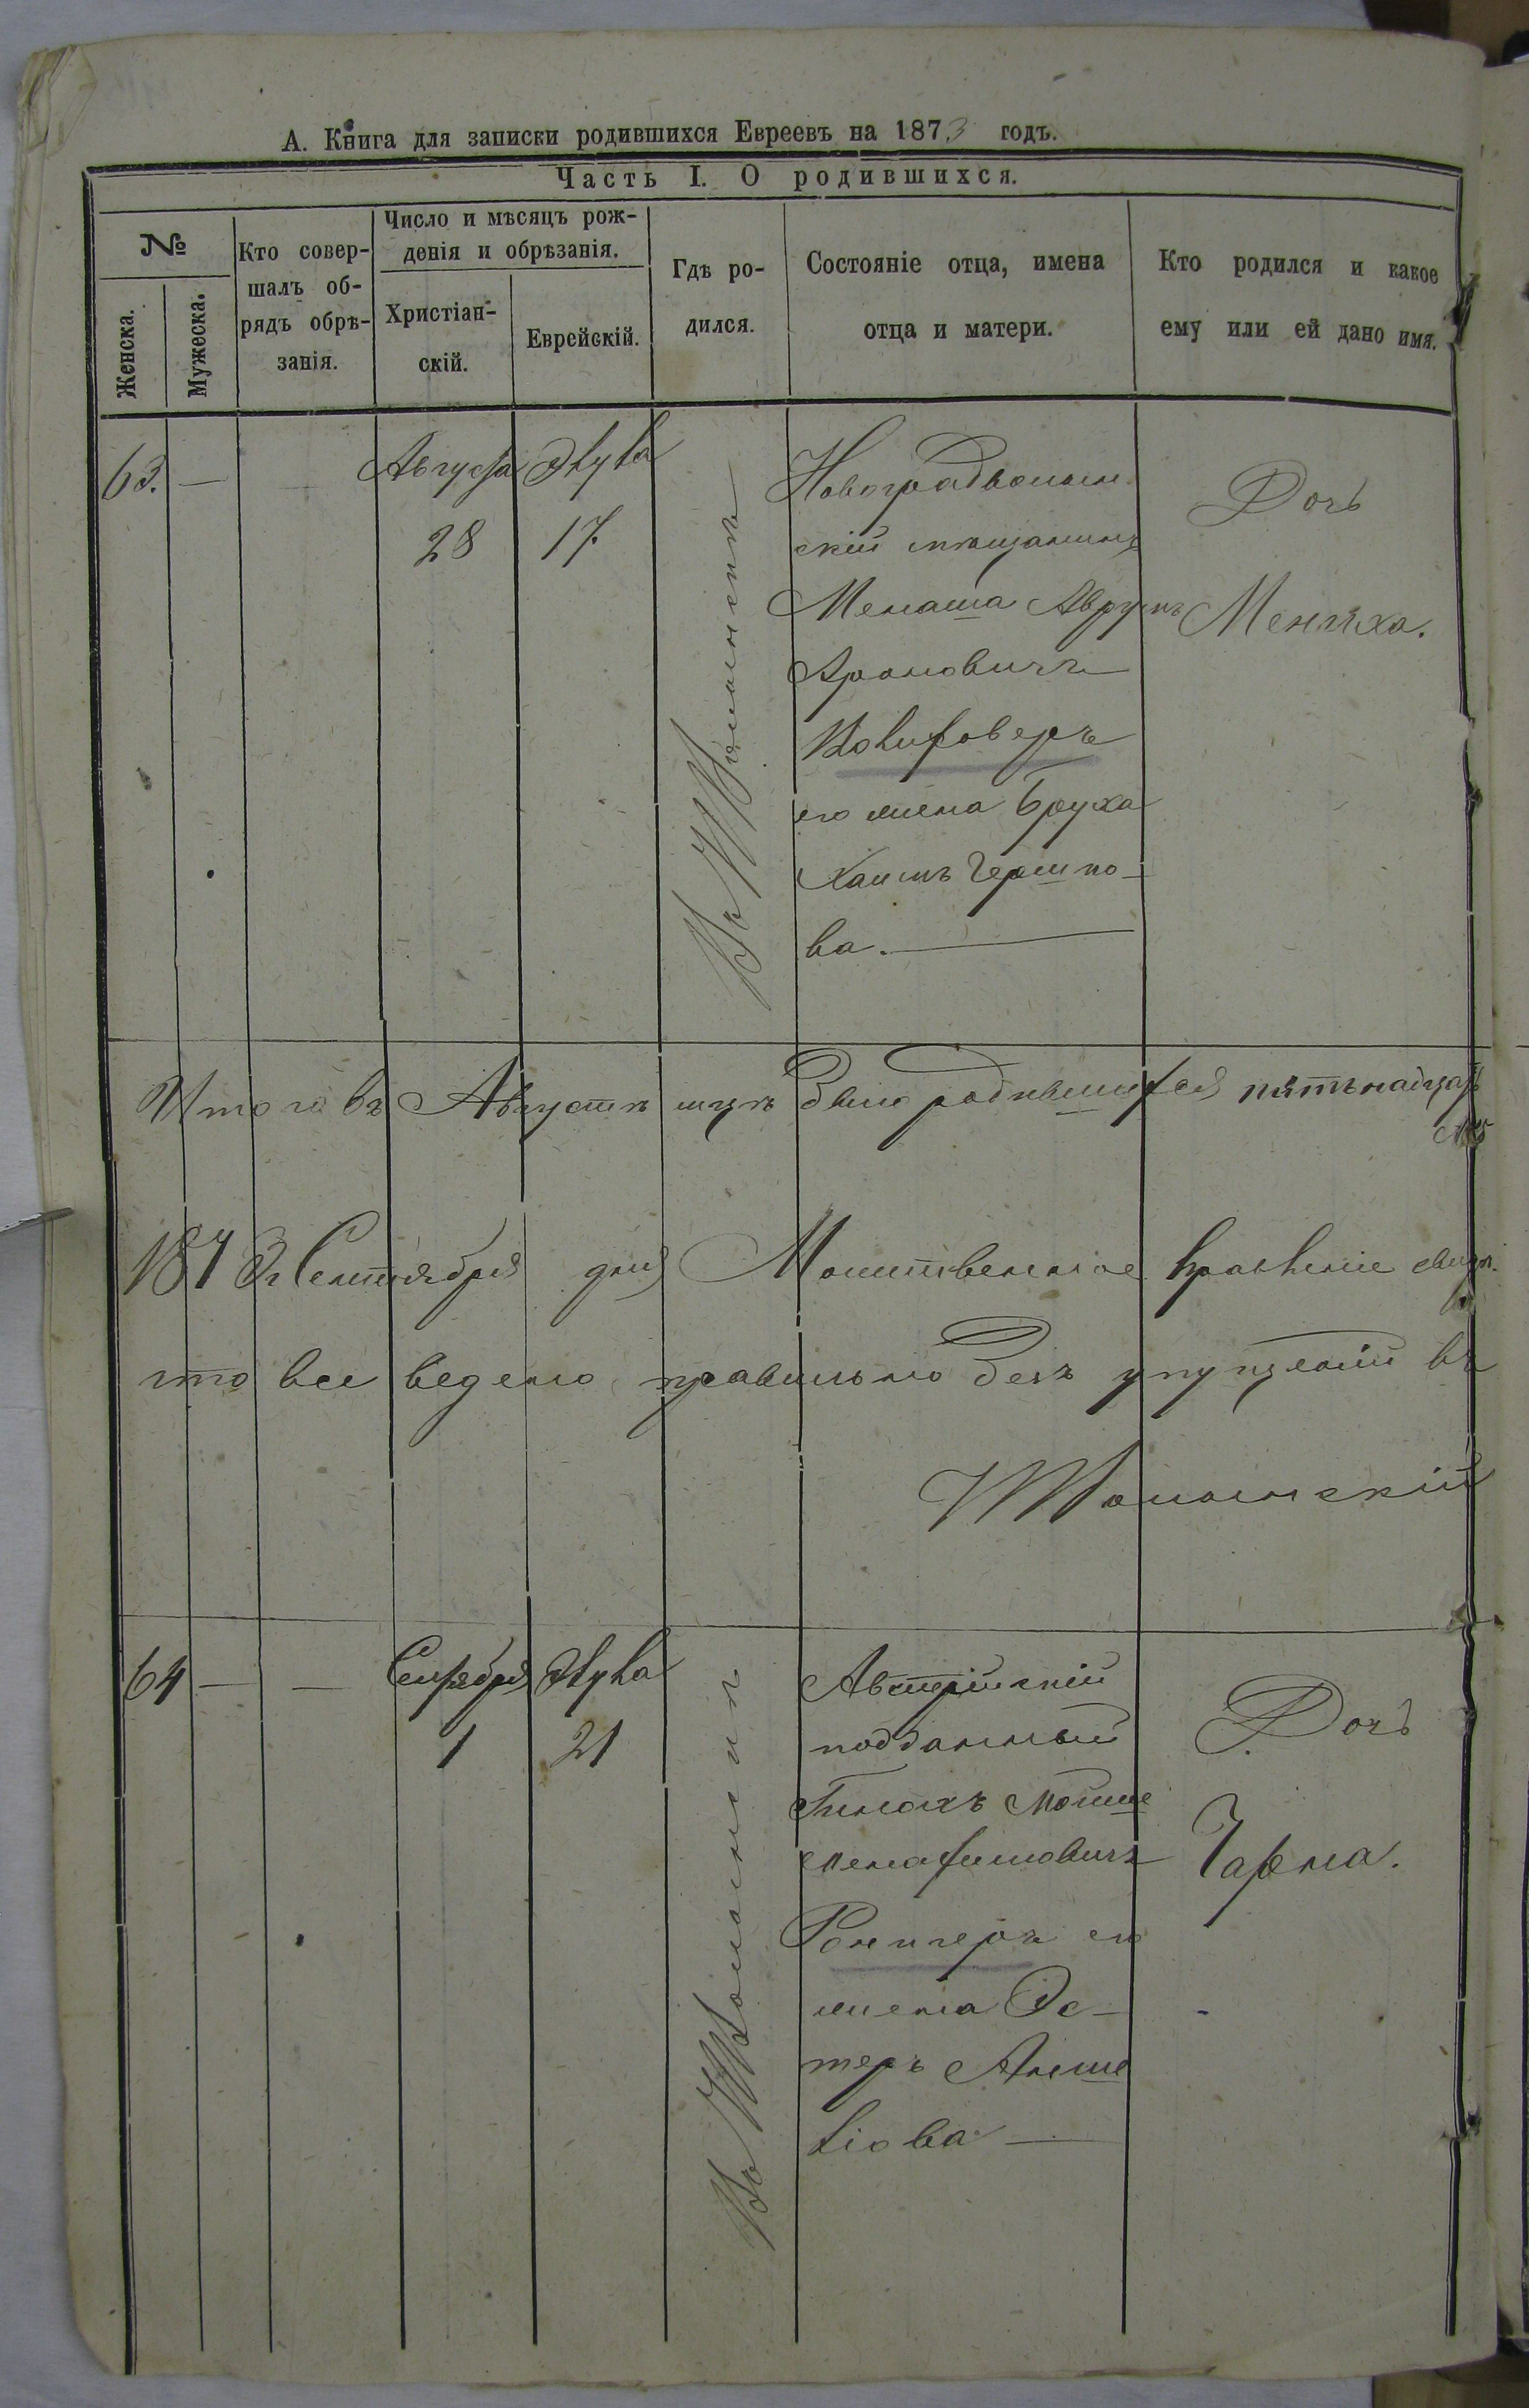 А. Книга для записки родившихся Евреевъ на 1873 годъ.
Часть I. О родившихся.
№
Женска.
Мужеска.
Кто совер-
шалъ об-
рядъ обрѣ-
занія.
Число и мѣсяцъ рож-
денія и обрѣзанія.
Христіан-
скій.
Еврейскій.
Гдѣ ро-
дился.
Состояніе отца, имена
отца и матери.
Кто родился и какое
ему или ей дано имя.
63. — —
Августа
28
Элула
17.
Въ
Новоградволын
скій мѣщанинъ
Менаша Аврумъ
Ароновичъ
его жена Бруха
Хаимъ Гершко-
ва. —
Дочь
Менуха.
Итого въ Августѣ мцѣ было родившихся пятьнадцать
№ 15
1873 г Сентября дня Молитвенное Правленіе свидѣ.
что все ведено правильно безъ упущеній въ
64 — —
Сентября
1
Элула
21
Въ
Австрійскій
подданный
Пинхасъ Мойше
его
жена Эс-
теръ Анше
лiова —
Дочь
Чарна.